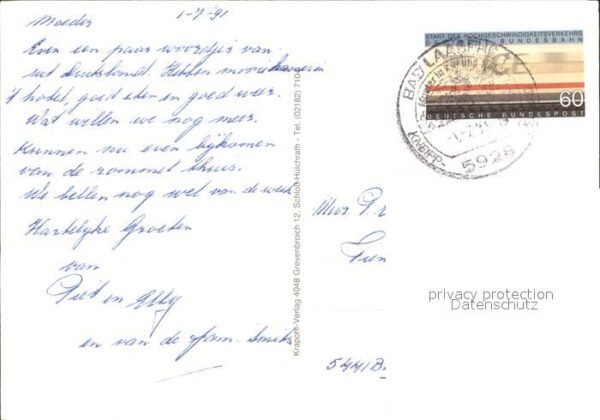 1-7-'91
Moeder
Even een paar woordjes van
uit Duitsland. Hebben mooie kamer in
't hotel, goed eten en goed weer.
Wat willen we nog meer.
Kunnen nu even bijkomen
van de rommel thuis.
We bellen nog wel van de week
Hartelijke Groeten
van
Piet en Elly
en van de fam. Smits
Krapohl-Verlag 4048 Grevenbroich 12, Schloß Hülchrath - Tel. (02182) 7104
START DES HOCHGESCHWINDIGKEITSVERKEHRS
DEUTSCHE BUNDESBAHN
60
DEUTSCHE BUNDESPOST
BAD LAASPHE
KNEIPP-
5928
Mevr.
5441 B
privacy protection
Datenschutz